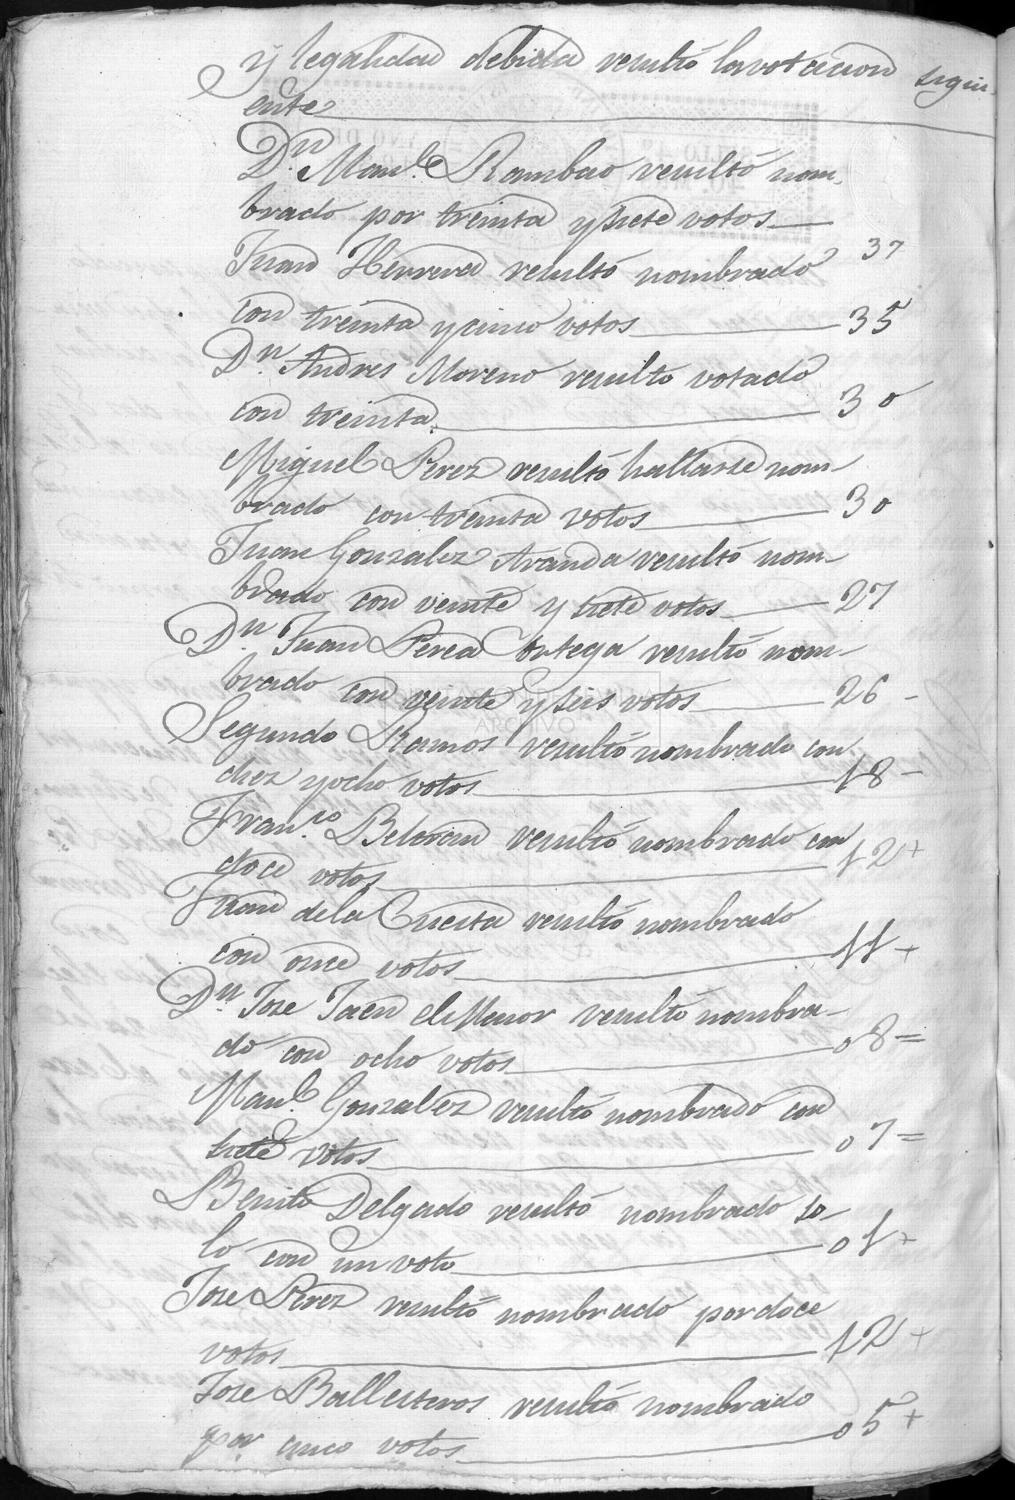 y legalidad debida resultó la votacion sigui-
ente
Dn. Manl. Rambao resultó nom-
brado por treinta y siete votos 37
Juan Herrera resultó nombrado
con treinta y cinco votos 35
Dn. Andres Moreno resulto votado
con treinta 30
Miguel Perez resultó hallarse nom-
brado con treinta votos 30
Juan Gonzalez Aranda resultó nom-
brado con veinte y siete votos 27
Dn. Juan Perea Ortega resultó nom-
brado con veinte y seis votos 26 -
Segundo Ramos resultó nombrado con
diez y ocho votos 18 -
Fran.co Beltran resultó nombrado con
doce votos 12 +
Fran de la Cuesta resultó nombrado
con once votos 11 +
Dn. Jose Jaen el Menor resultó nombra-
do con ocho votos 08 =
Manl. Gonzalez resultó nombrado con
siete votos 07 =
Benito Delgado resultó nombrado so-
lo con un voto 01 +
Jose Perez resultó nombrado por doce
votos 12 +
Jose Ballesteros resultó nombrado
por cinco votos 05 +
ARCHIVO